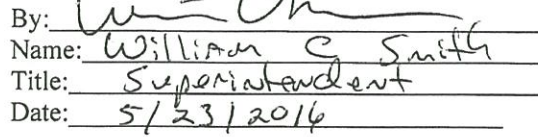 By:
Name: William C Smith
Title: Superintendent
Date: 5/23/2016